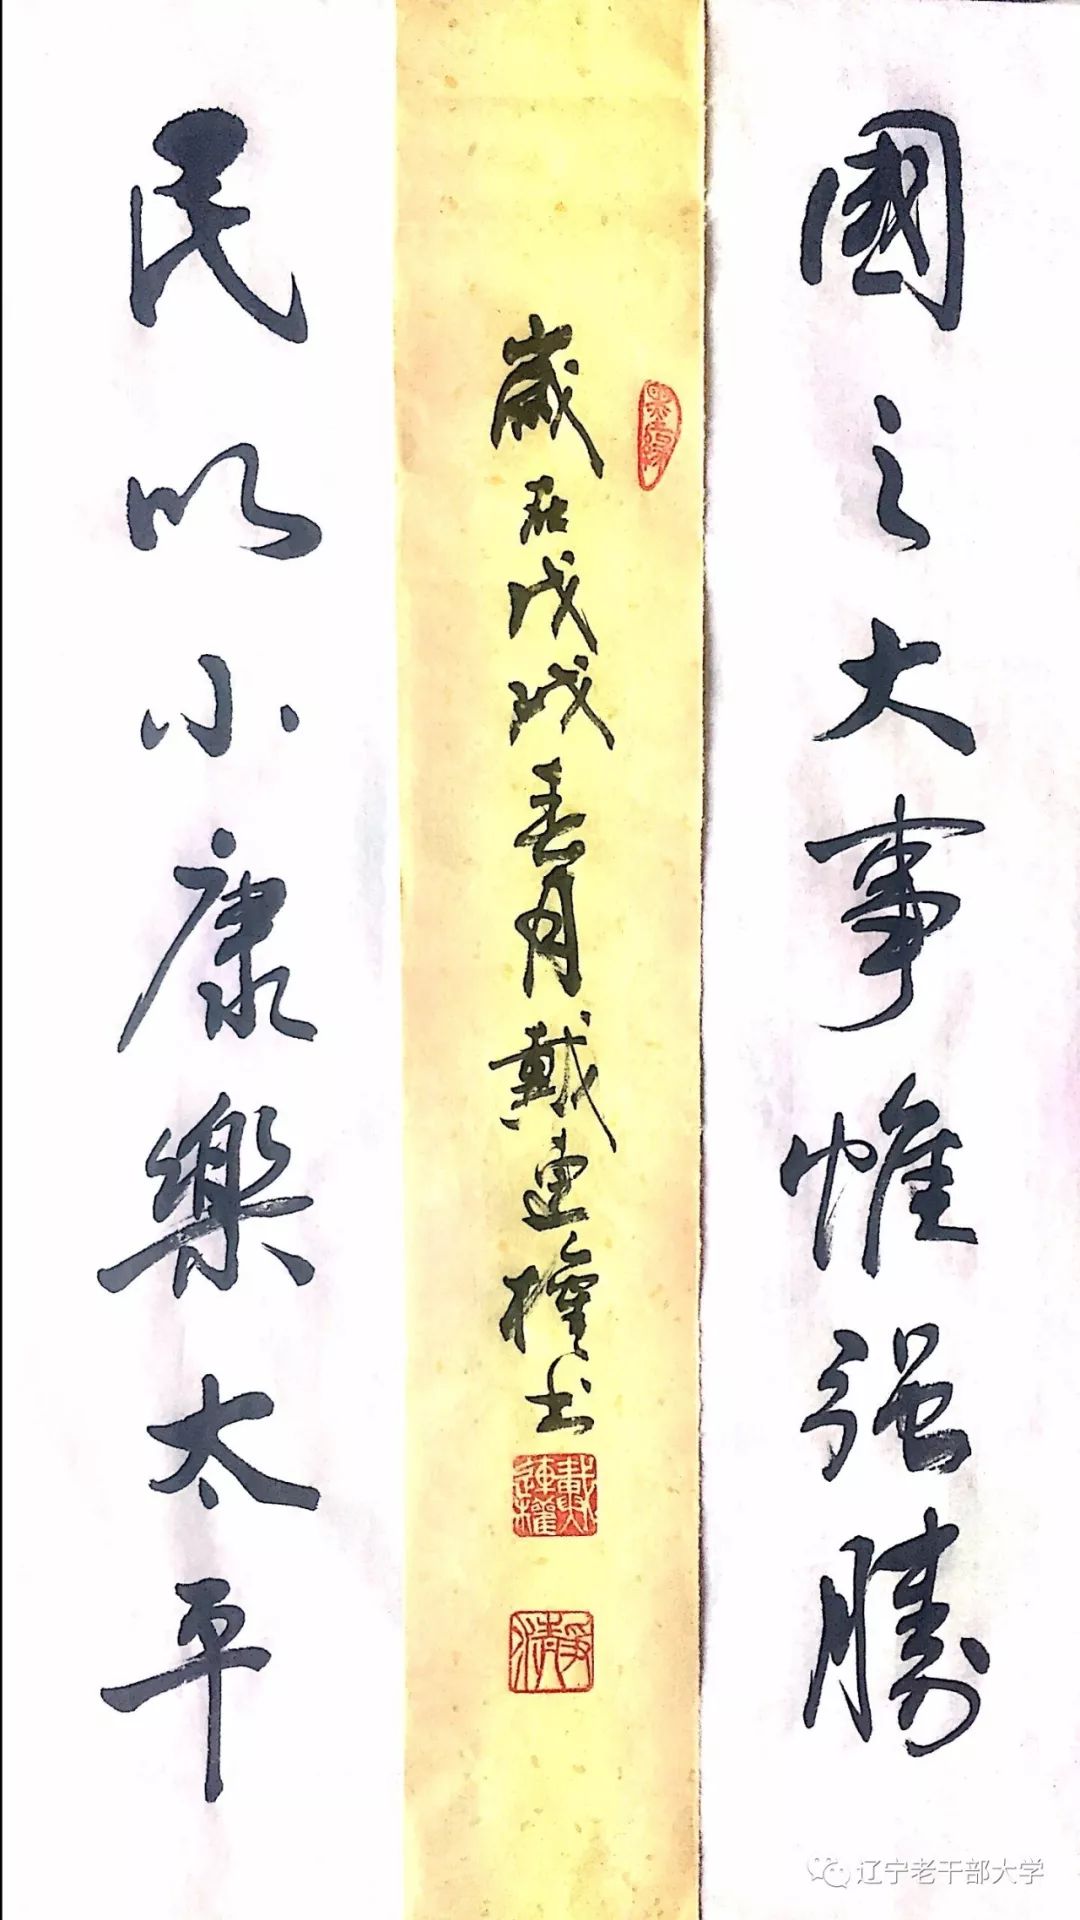 國之大事惟强勝
民以小康樂太平
歲在戊戌春月戴連權书
戴連權
辽宁老干部大学